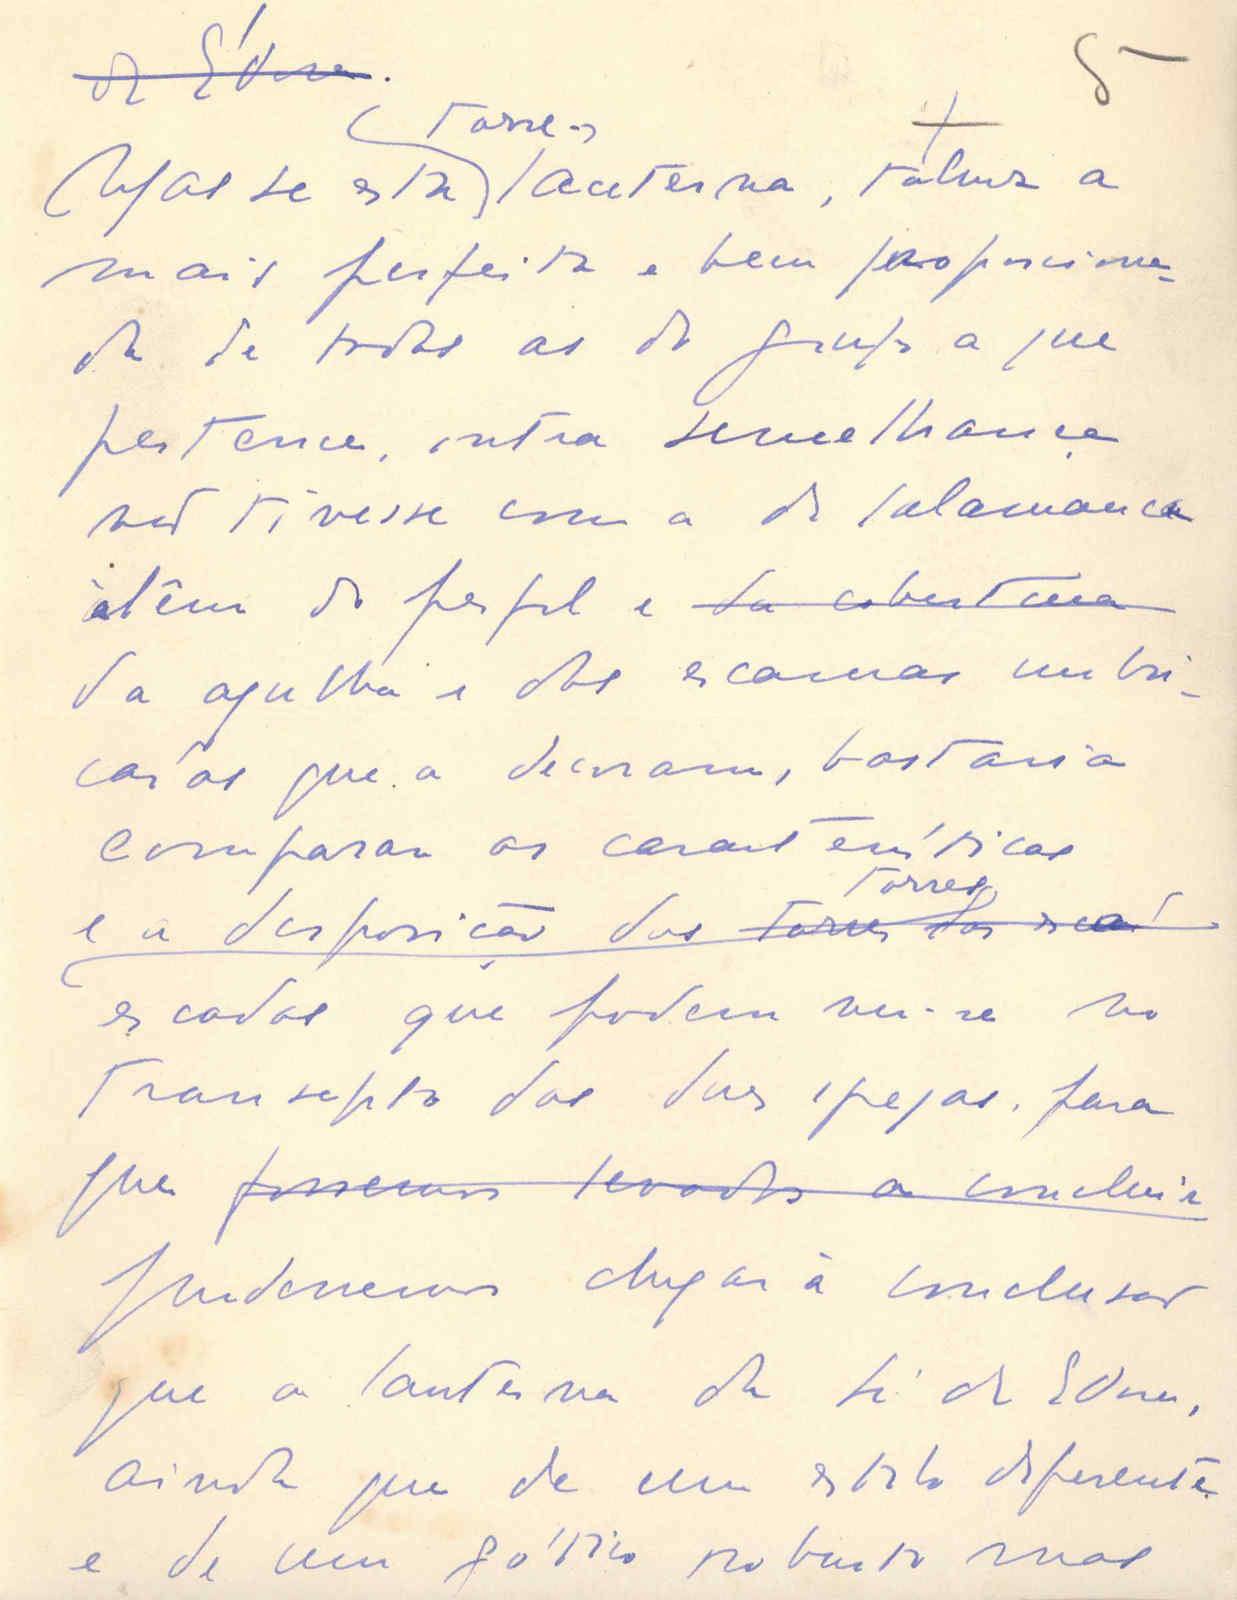 de Évora.
5
torre-
Mas se esta lanterna, talvez a
mais perfeita e bem proporciona-
da de todas as do grupo a que
pertence, outra semelhança
não tivesse com a de Salamanca
além do perfil e da cobertura
da agulha e das escamas imbri-
cadas que a decoram, bastaria
comparar as características
e a disposição das torres das esca
torres
escadas que podem ver-se no
transepto das duas igrejas, para
que fossemos levados a concluir
pudessemos chegar à conclusão
que a lanterna da Sé de Évora,
ainda que de um estilo diferente
e de um gótico robusto mas